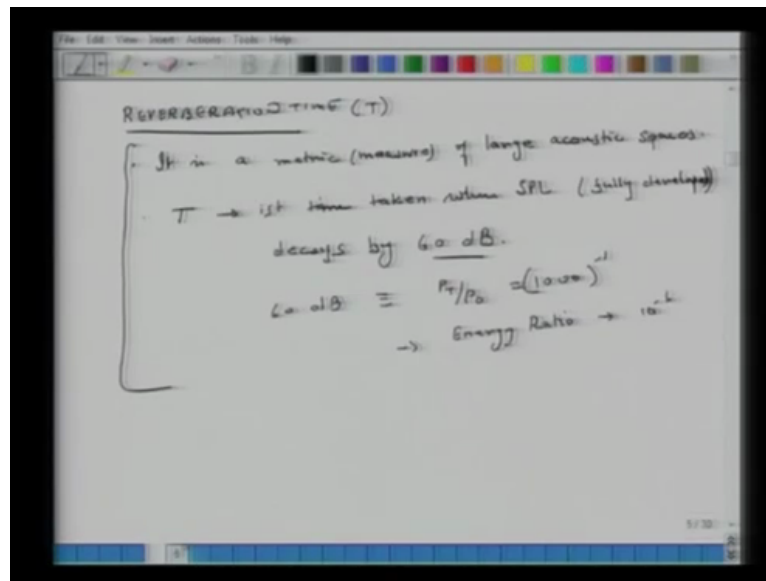 File Edit View Insert Actions Tools Help
REVERBERATION TIME (T)
. It is a metric (measure) of large acoustic spaces.
. T → ist time taken when SPL (fully developed)
decays by 60 dB.
60 dB ≡ PT/P0 = (1000)⁻¹
→ Energy Ratio → 10⁻⁶
5/30